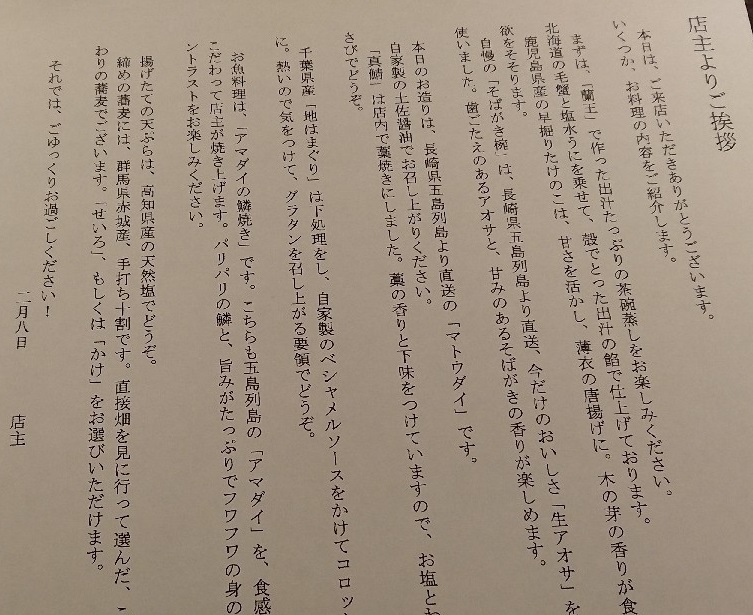 店主よりご挨拶
本日は、ご来店いただきありがとうございます。
いくつか、お料理の内容をご紹介します。
まずは、「蘭王」で作った出汁たっぷりの茶碗蒸しをお楽しみください。
北海道の毛蟹と塩水うにを乗せて、殻でとった出汁の餡で仕上げております。
鹿児島県産の早掘りたけのこは、甘さを活かし、薄衣の唐揚げに。木の芽の香りが食
欲をそそります。
自慢の「そばがき椀」は、長崎県五島列島より直送、今だけのおいしさ「生アオサ」を
使いました。歯ごたえのあるアオサと、甘みのあるそばがきの香りが楽しめます。
本日のお造りは、長崎県五島列島より直送の「マトウダイ」です。
自家製の土佐醤油でお召し上がりください。
「真鯖」は店内で藁焼きにしました。藁の香りと下味をつけていますので、お塩とわ
さびでどうぞ。
千葉県産「地はまぐり」は下処理をし、自家製のベシャメルソースをかけてコロッ
に。熱いので気をつけて、グラタンを召し上がる要領でどうぞ。
お魚料理は、「アマダイの鱗焼き」です。こちらも五島列島の「アマダイ」を、食感
こだわって店主が焼き上げます。パリパリの鱗と、旨みがたっぷりでフワフワの身の
ントラストをお楽しみください。
揚げたての天ぷらは、高知県産の天然塩でどうぞ。
締めの蕎麦には、群馬県赤城産、手打ち十割です。直接畑を見に行って選んだ、こ
わりの蕎麦でございます。「せいろ」、もしくは「かけ」をお選びいただけます。
それでは、ごゆっくりお過ごしください！
二月八日 店主